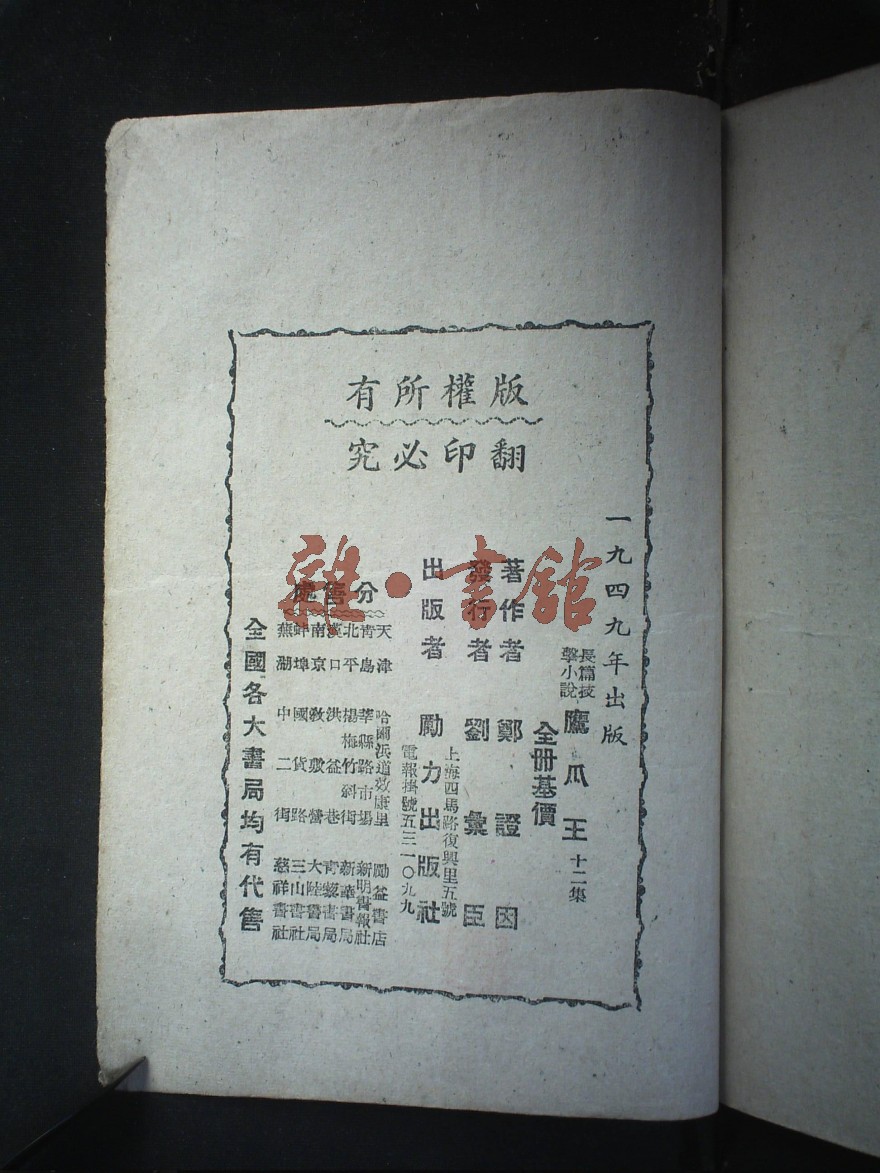 版權所有
翻印必究
一九四九年出版
長篇技擊小說 鷹爪王 十二集
全冊基價
著作者 鄭證因
發行者 劉彙臣
上海四馬路復興里五號
出版者 勵力出版社
電報掛號五三一〇九九
分售處
天津 哈爾浜道效康里 勵益書店
青島 莘縣路市場 新明書報社
北平 楊梅竹斜街 新華書局
漢口 洪益巷 青黎書局
南京 敦敷營 大陸書局
蚌埠 國貨路 三山書社
蕪湖 中二街 慈祥書社
全國各大書局均有代售
雜·書館